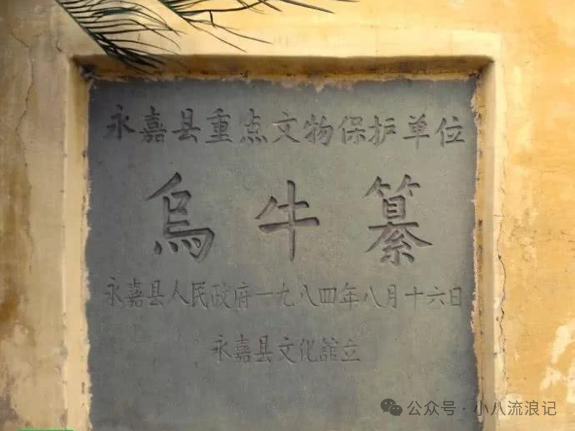 永嘉县重点文物保护单位
烏牛纂
永嘉县人民政府一九八四年八月十六日
永嘉县文化舘立
公众号·小八流浪记